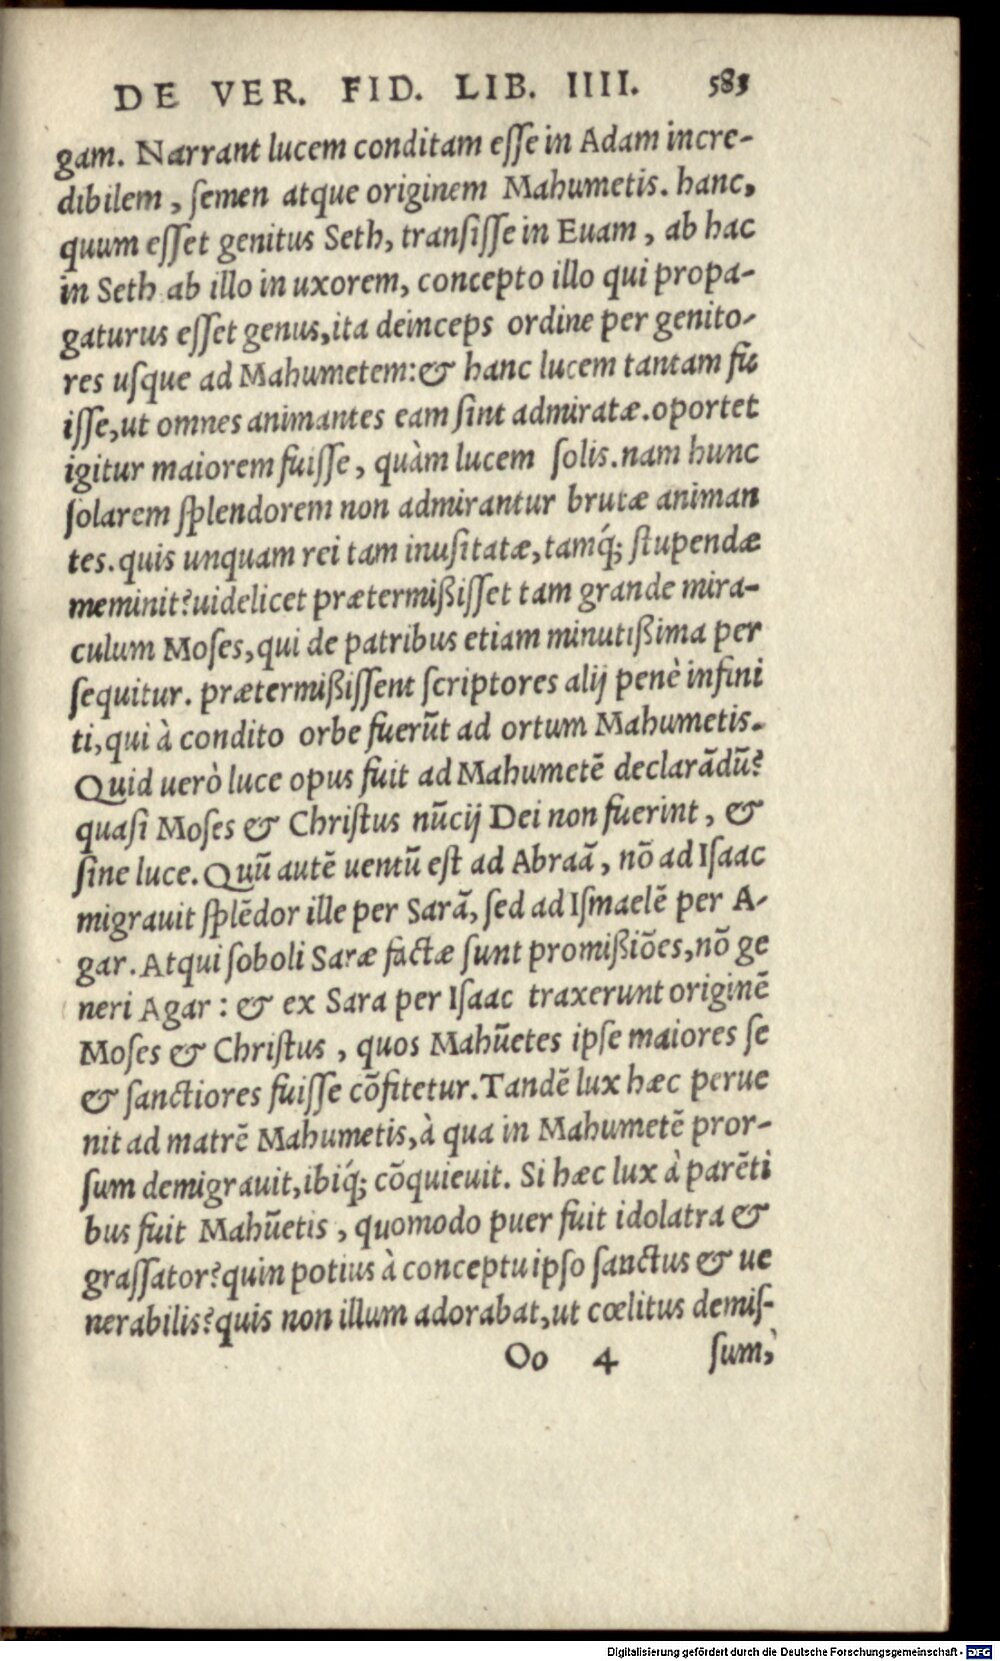 DE VER. FID. LIB. IIII. 583
gam. Narrant lucem conditam eſſe in Adam incre-
dibilem, ſemen atque originem Mahumetis. hanc,
quum eſſet genitus Seth, tranſiſſe in Euam, ab hac
in Seth ab illo in uxorem, concepto illo qui propa-
gaturus eſſet genus, ita deinceps ordine per genito-
res uſque ad Mahumetem: & hanc lucem tantam fu
iſſe, ut omnes animantes eam ſint admiratæ. oportet
igitur maiorem fuiſſe, quàm lucem ſolis. nam hunc
ſolarem ſplendorem non admirantur brutæ animan
tes. quis unquam rei tam inuſitatæ, tamq́; ſtupendæ
meminit? uidelicet prætermißiſſet tam grande mira-
culum Moſes, qui de patribus etiam minutißima per
ſequitur. prætermißiſſent ſcriptores alij penè infini
ti, qui à condito orbe fuerũt ad ortum Mahumetis.
Quid uerò luce opus fuit ad Mahumetẽ declarãdũ?
quaſi Moſes & Chriſtus nũcij Dei non fuerint, &
ſine luce. Quũ autẽ uentũ eſt ad Abraã, nõ ad Iſaac
migrauit ſplẽdor ille per Sarã, ſed ad Iſmaelẽ per A-
gar. Atqui ſoboli Saræ factæ ſunt promißiões, nõ ge
neri Agar: & ex Sara per Iſaac traxerunt originẽ
Moſes & Chriſtus, quos Mahũetes ipſe maiores ſe
& ſanctiores fuiſſe cõfitetur. Tandẽ lux hæc perue
nit ad matrẽ Mahumetis, à qua in Mahumetẽ pror-
ſum demigrauit, ibiq́; cõquieuit. Si hæc lux à parẽti
bus fuit Mahũetis, quomodo puer fuit idolatra &
graſſator? quin potius à conceptu ipſo ſanctus & ue
nerabilis? quis non illum adorabat, ut cœlitus demiſ-
Oo 4 ſum,
Digitalisierung gefördert durch die Deutsche Forschungsgemeinschaft - DFG